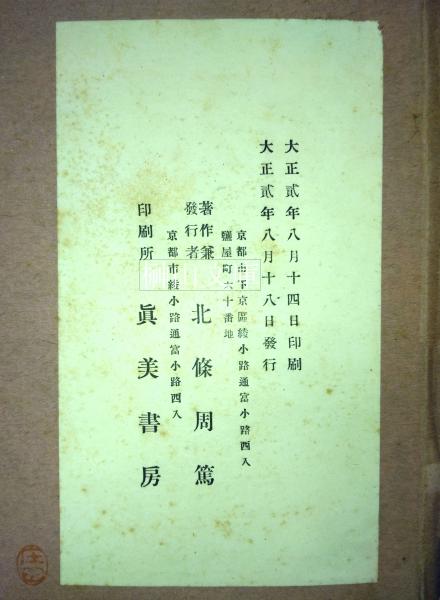 大正貳年八月十四日印刷
大正貳年八月十八日發行
京都市下京區綾小路通富小路西入
鹽屋町六十番地
著作兼
發行者
北條周篤
京都市綾小路通富小路西入
印刷所
眞美書房